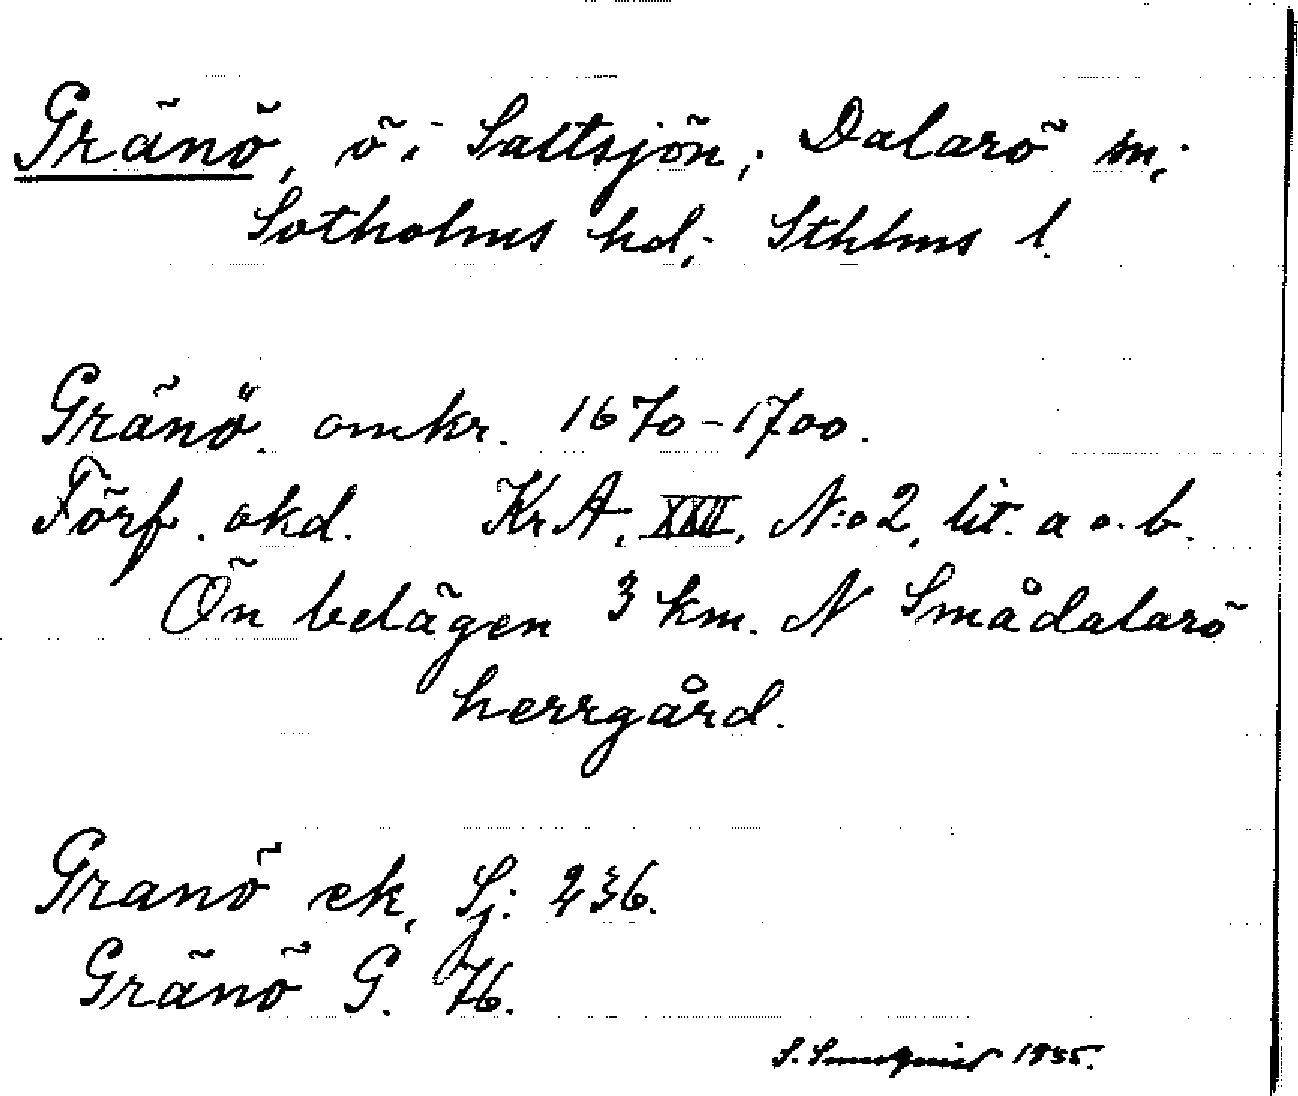 Gränö, ö i Saltsjön; Dalarö sn;
Sotholms hd; Sthlms l.
Gränö. omkr. 1670-1700.
Förf. okd. Kr. A, XXII, N:o 2, lit. a o. b.
Ön belägen 3 km. N Smådalarö
herrgård.
Granö ek, Sj: 236.
Gränö G. 76.
S. 1935.